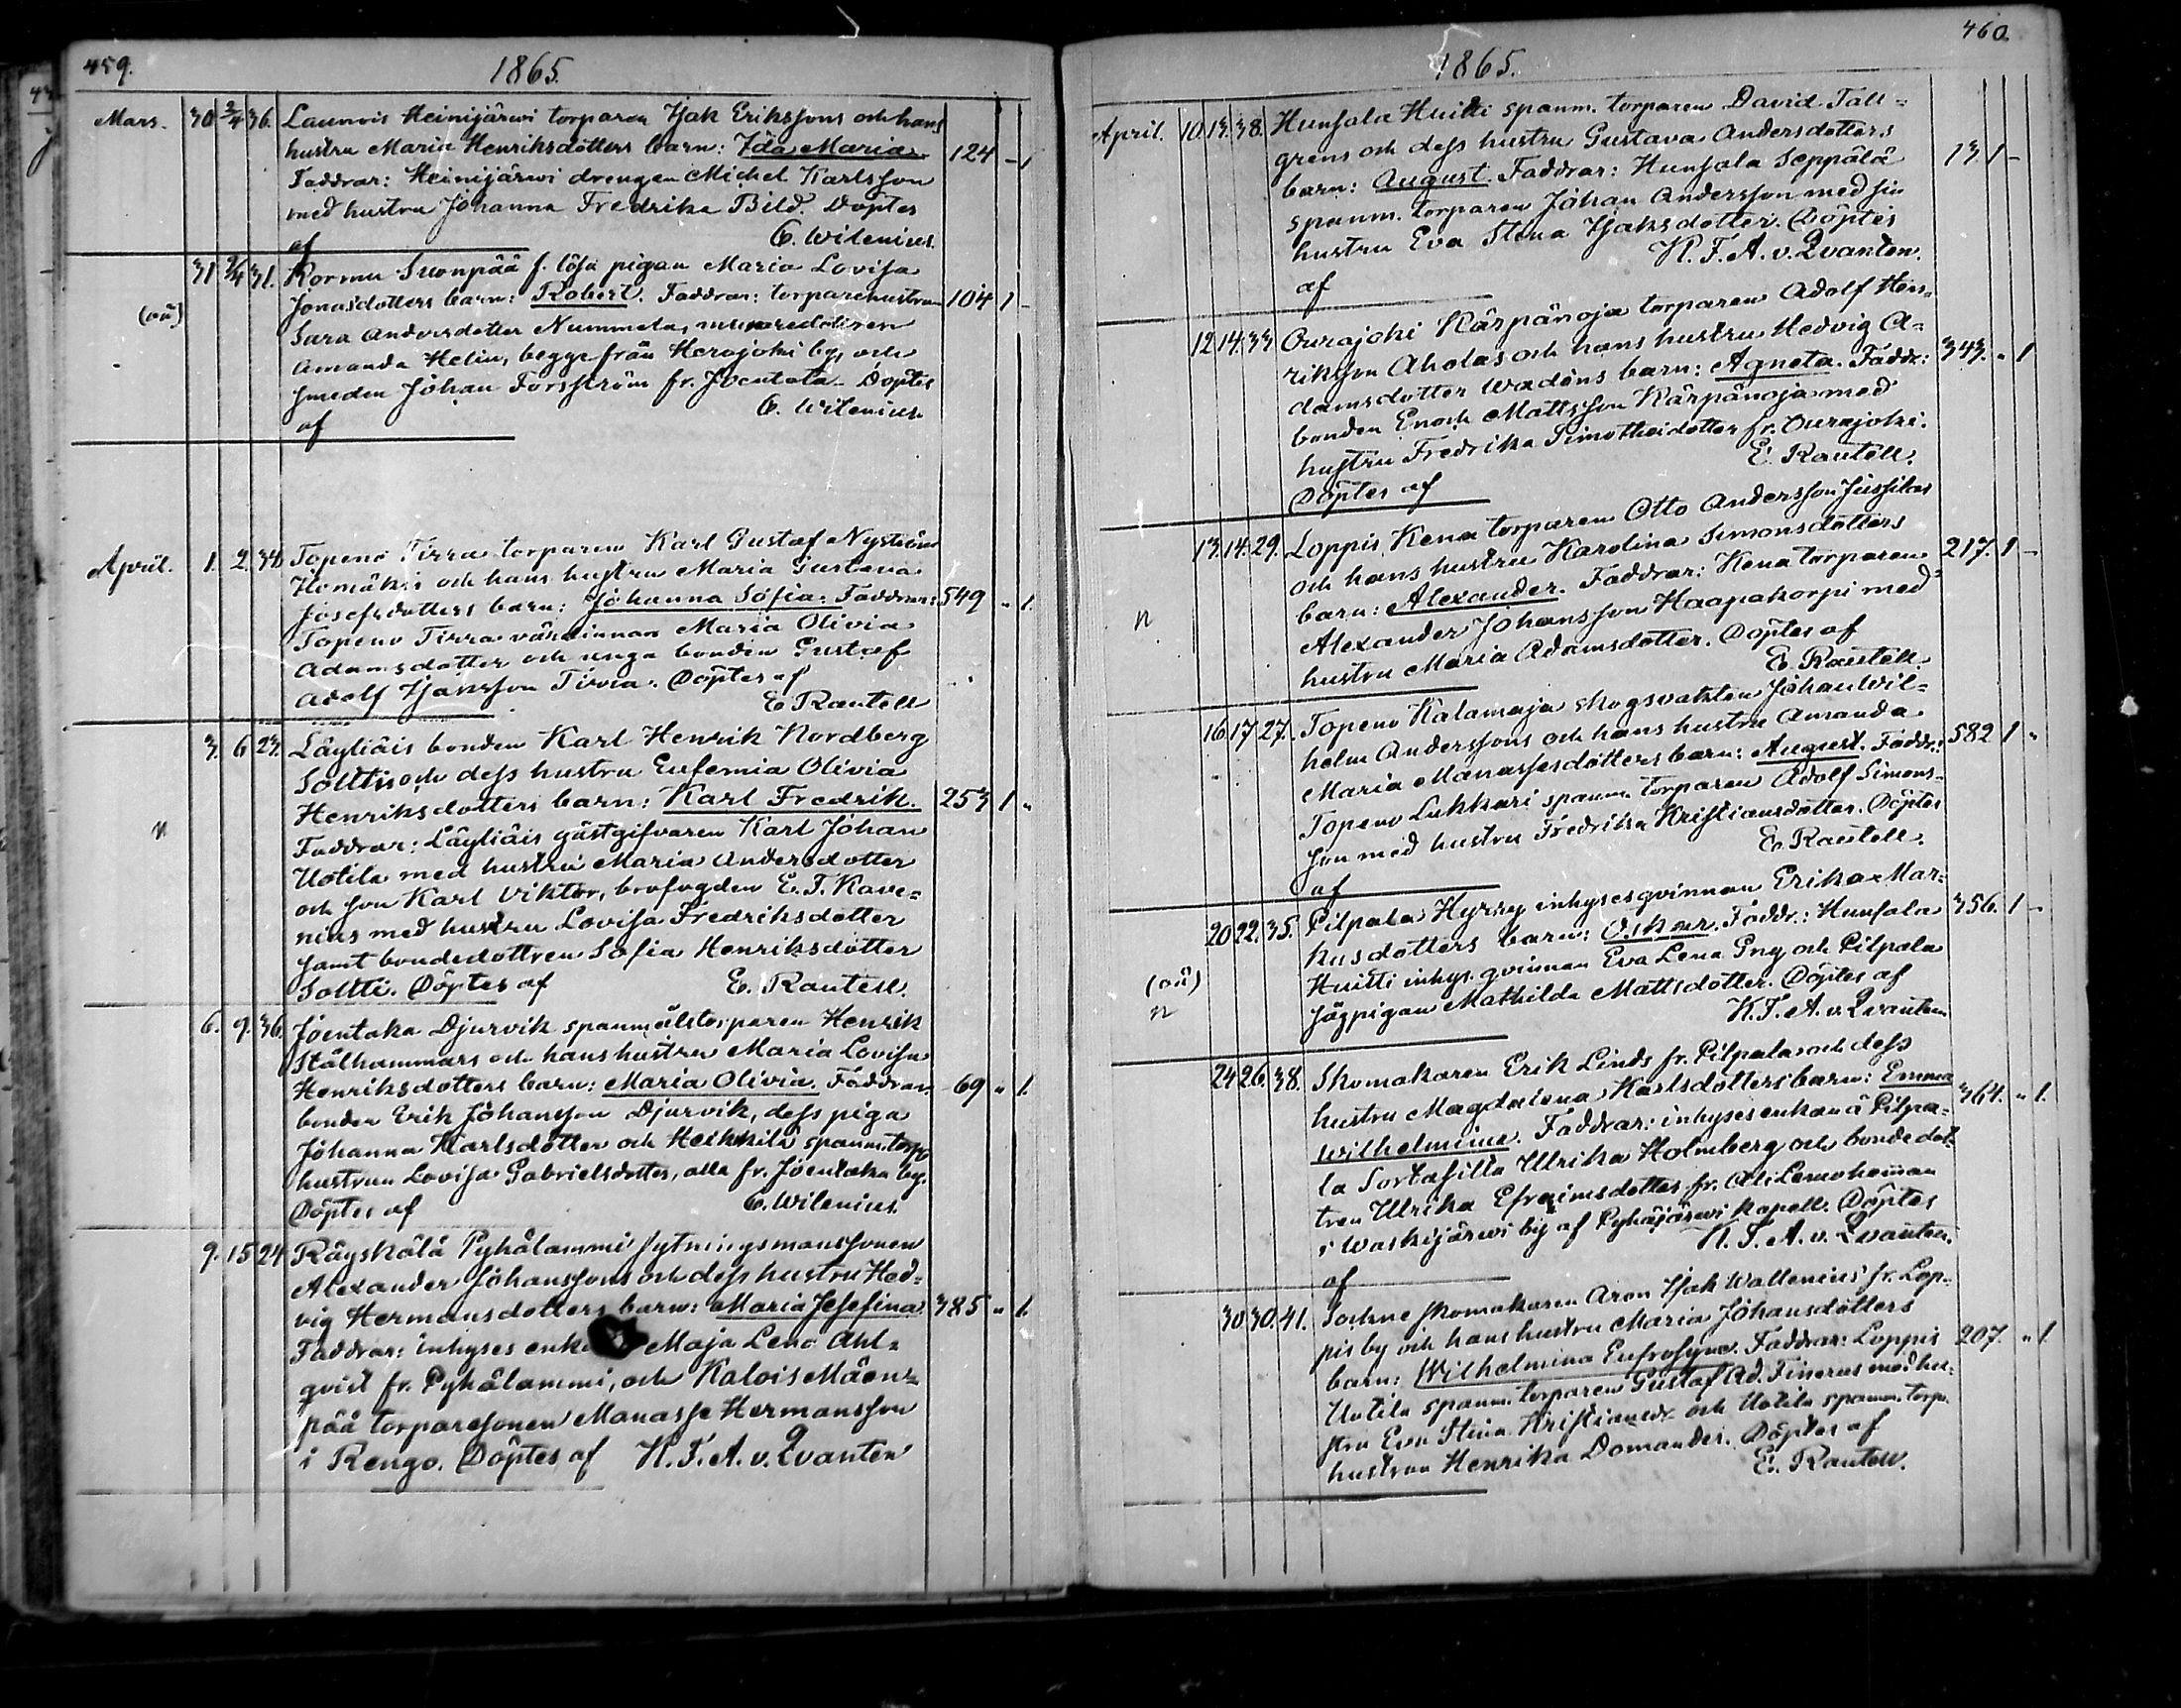 459.
1865.
Mars. 30 2/4 36. Launois Heinijärwi torparen Isak Erikssons och hans
hustru Maria Henriksdotters barn: Ida Maria. 124 - 1
Faddrar: Heinijärwi drengen Michel Karlsson
med hustru Johanna Fredrika Bild. Döptes
af C. Wilenius.
31 2/4 31. Kormu Suonpää f. lösa pigan Maria Lovisa
(oä) Jonasdotters barn: Robert. Faddrar: torparehustrun 104 1 -
Sara Andersdotter Nummela,
Amanda Helin, begge från Herajoki by, och
smeden Johan Forsström fr. Joentaka. Döptes
af C. Wilenius.
April. 1. 2. 34. Topeno Tirra torparen Karl Gustaf Nyström
och hans hustru Maria Gustava
Josefsdotters barn: Johanna Sofia. Faddrar: 549 " 1.
Topeno Tirra värdinnan Maria Olivia
Adamsdotter och unga bonden Gustaf
Adolf Isaksson Tirra. Döptes af
E. Rautell
3. 6. 23. Läyliäis bonden Karl Henrik Nordberg
Solttis och dess hustru Eufemia Olivia
Henriksdotters barn: Karl Fredrik. 253 1 "
n Faddrar: Läyliäis gästgifvaren Karl Johan
Uotila med hustru Maria Andersdotter
och son Karl Viktor, brofogden E. T. Kave=
nius med hustru Lovisa Fredriksdotter
samt bondedottren Sofia Henriksdotter
Soltti. Döptes af E. Rautell.
6. 9. 36. Joentaka Djurvik spanmålstorparen Henrik
Stålhammars och hans hustru Maria Lovisa
Henriksdotters barn: Maria Olivia. Faddrar: 69 " 1.
bonden Erik Johansson Djurvik, dess piga
Johanna Karlsdotter och Heikkilä spanm. torp.
hustrun Lovisa Gabrielsdotter, alla fr. Joentaka by.
Döptes af C. Wilenius.
9. 15 24 Räyskälä Pyhälammi sytningsmanssonen
Alexander Johanssons och dess hustru Hed=
vig Hermansdotters barn: Maria Josefina. 385 " 1.
Faddrar: inhyses Maja Lena Ahl=
qvist fr. Pyhälammi, och Kalois Mäen=
pää torparesonen Manasse Hermansson
i Rengo. Döptes af K. F. A. v. Qvanten
460.
1865.
April. 10. 13. 38. Hunsala Huitti spanm. torparen David Tall=
grens och dess hustru Gustava Andersdotters
barn: August. Faddrar: Hunsala Seppälä 13. 1 -
spanm. torparen Johan Andersson med sin
hustru Eva Stina Isaksdotter. Döptes
af K. F. A. v. Qvanten.
12 14. 33 Ourajoki Kärpänoja torparen Adolf Hen=
riksson Aholas och hans hustru Hedvig A=
damsdotter Wadéns barn: Agneta. Faddr.: 343. " 1
bonden Enoch Mattsson Kärpänoja med
hustru Fredrika Simotheidotter fr. Ourajoki.
Döptes af E. Rautell.
13. 14. 29. Loppis Kena torparen Otto Andersson Jussilas
och hans hustru Karolina Simonsdotters
n barn: Alexander. Faddrar: Kena torparen 217. 1 -
Alexander Johansson Haapakorpi med
hustru Maria Adamsdotter. Döptes af
E. Rautell.
16. 17 27. Topeno Kalamaja skogsvakten Johan Wil=
helm Anderssons och hans hustru Amanda
Maria Manassesdotters barn: August. Faddr.: 582 1 "
Topeno Lukkari spanm. torparen Adolf Simons=
son med hustru Fredrika Kristiansdotter. Döptes
af E. Rautell.
20 22. 35. Pilpala Hyrsy inhysesqvinnan Erika Mar=
kusdotters barn: Oskar. Faddr.: Hunsala 356. 1 -
(oä) Huitti inhys. qvinnan Eva Lena Gny och Pilpala
n pigan Mathilda Mattsdotter. Döptes af
K. F. A. v. Qvanten
24 26. 38. Skomakaren Erik Linds fr. Pilpala och dess
hustru Magdalena Karlsdotters barn: Emma
Wilhelmina. Faddrar: inhysesenkan å Pilpa= 364. " 1.
la Sortafilla Ulrika Holmberg och bondedot=
tren Ulrika Efraimsdotter fr. Ali Lemo hemman
i Waskijärwi by af Pyhäjärwi kapell. Döptes
af K. F. A. v. Qvanten.
30 30. 41. Sockne skomakaren Aron Isak Wallenius' fr. Lop=
pis by och hans hustru Maria Johansdotters
barn: Wilhelmina Eufrosyne. Faddrar: Loppis 207. " 1.
Uotila spanm. torparen Gustaf Ad. Finerus med hu=
stru Eva Stina Kristiansdr. och Uotila spanm. torp.
hustrun Henrika Domander. Döptes af
E. Rautell.